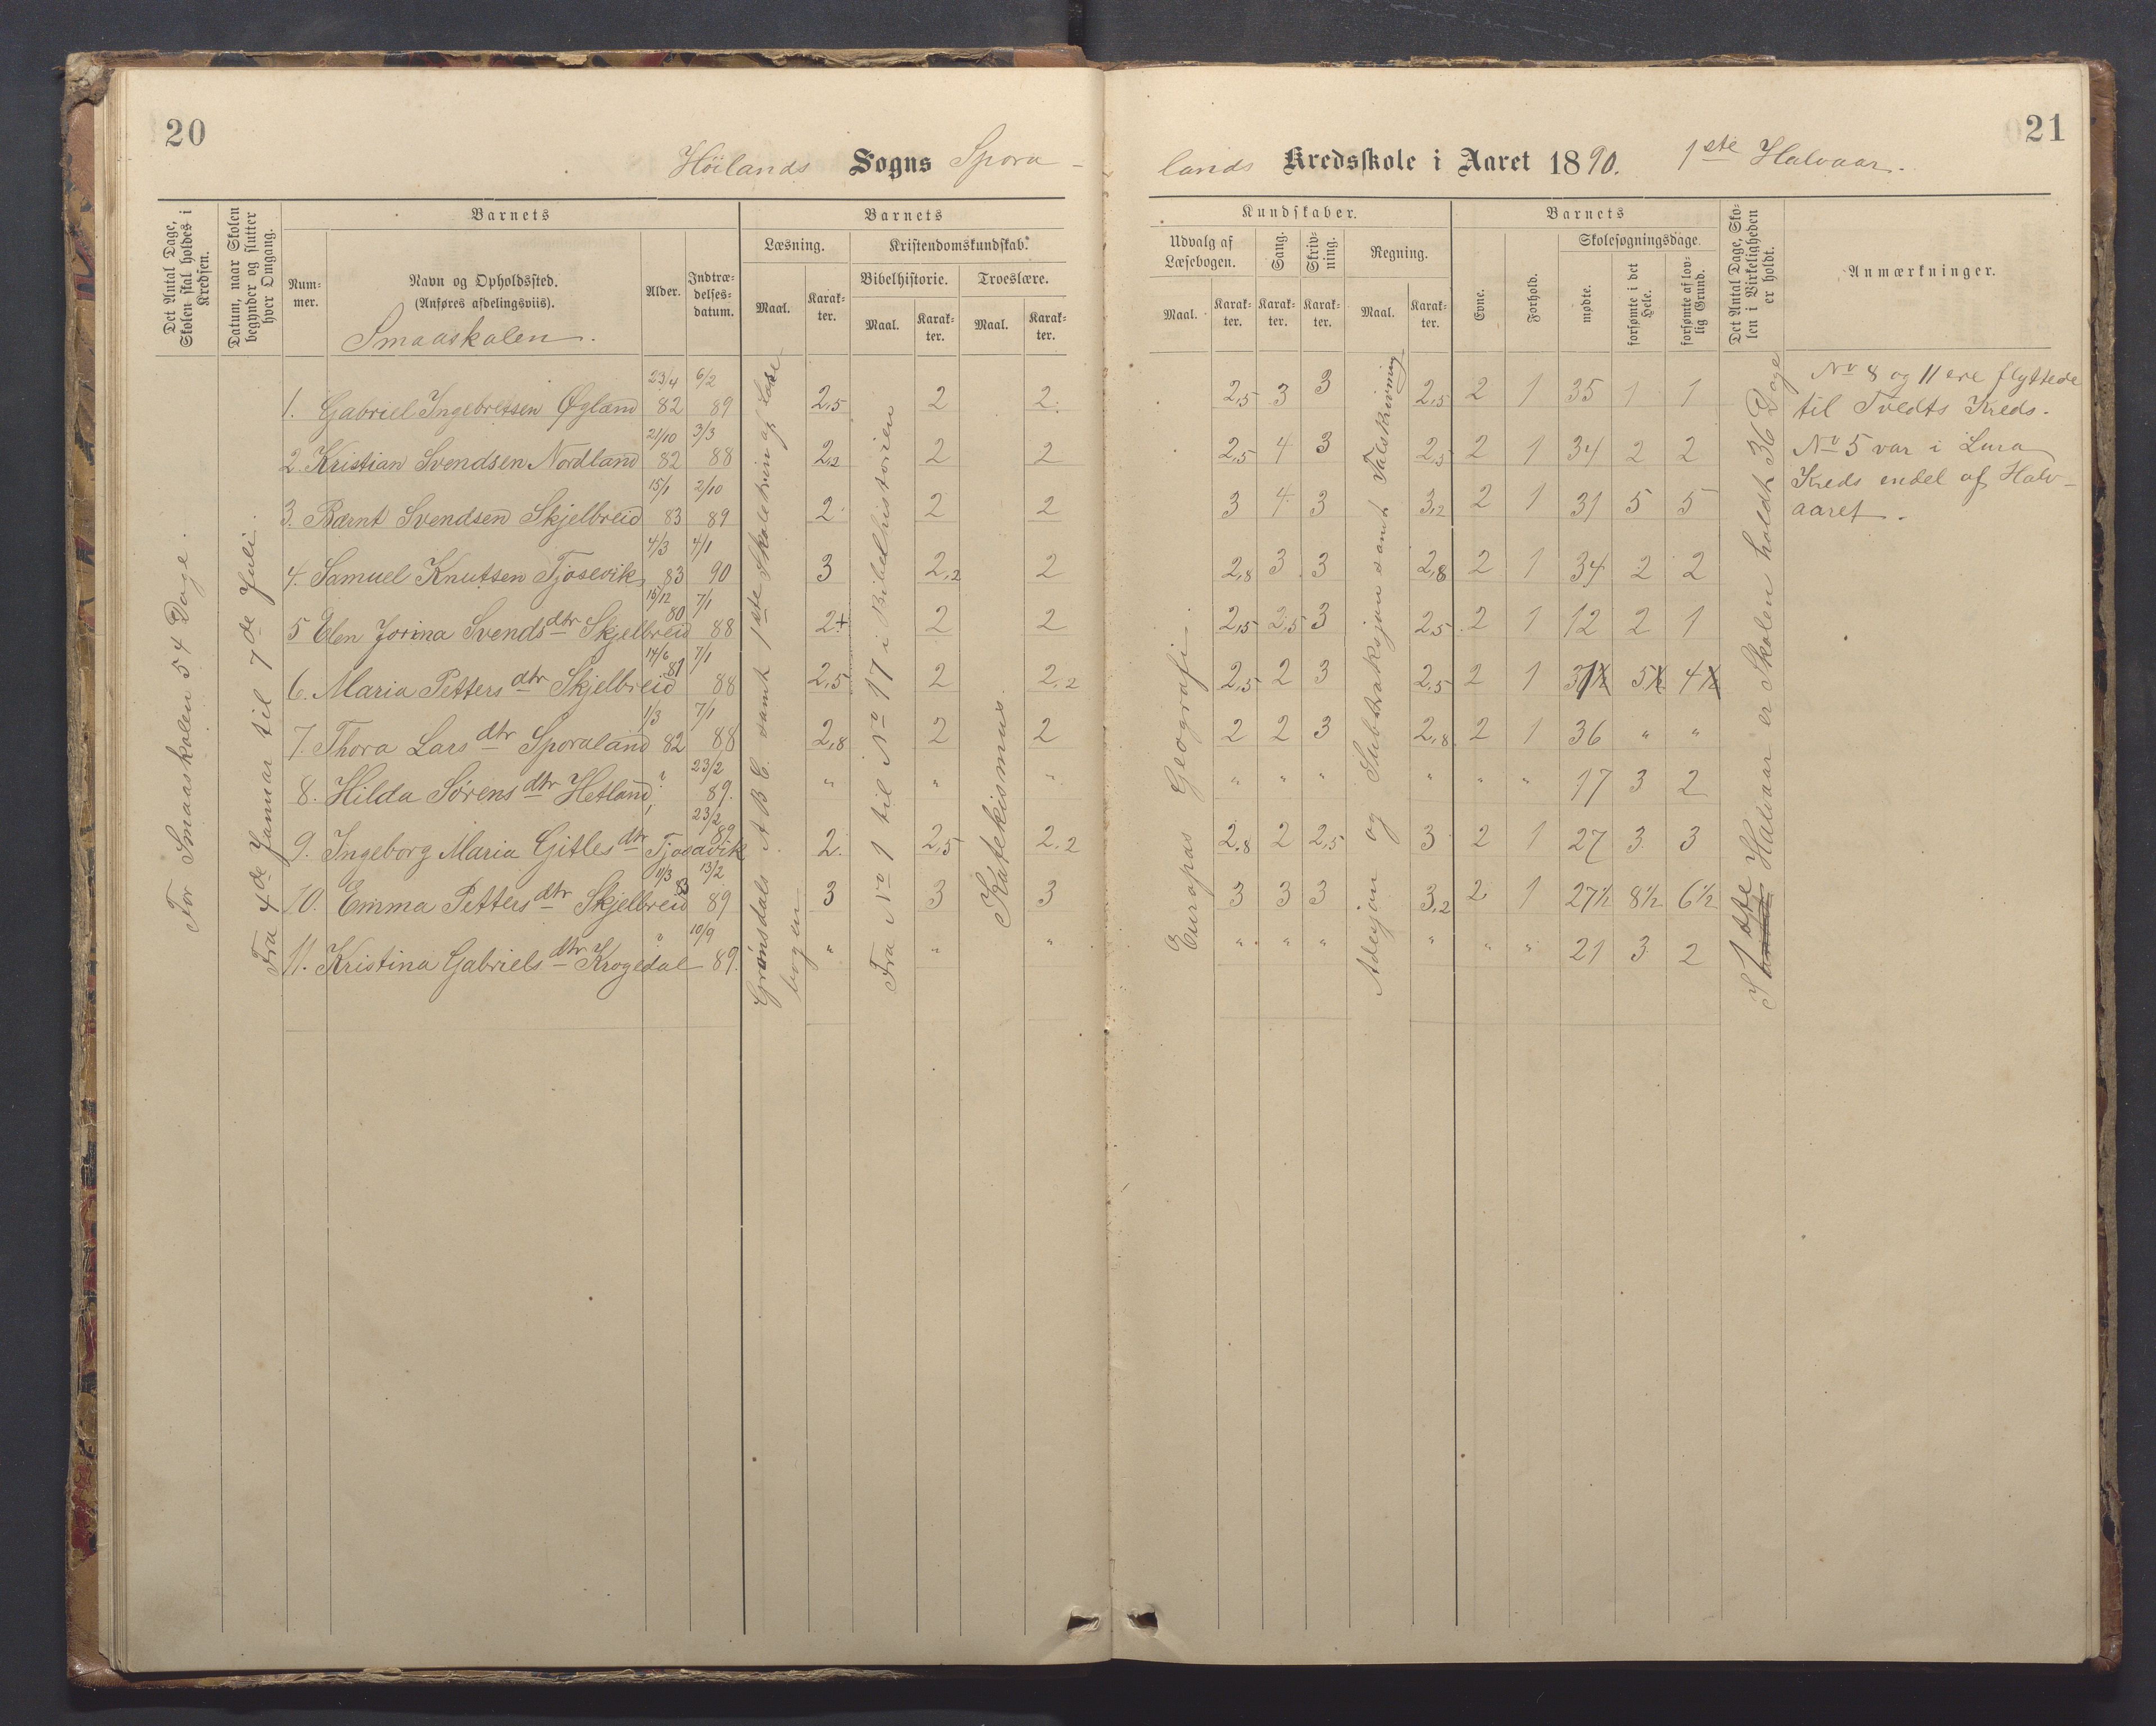 20
Höilands Sogns Spora-
Det Antal Dage, Skolen skal holdes i Kredsen.
Datum, naar Skolen begynder og slutter hver Omgang.
Barnets
Nummer.
Navn og Opholdssted.
(Anføres afdelingsviis).
Smaaskolen.
Alder.
Indtrædelses=datum.
Barnets
Læsning.
Maal.
Karakter.
Kristendomskundskab.
Bibelhistorie.
Maal.
Karakter.
Troeslære.
Maal.
Karakter.
For Smaaskolen 54 Dage.
Fra 4de Januar til 7de Juli.
1. Gabriel Ingebretsen Øgland 23/4 82 6/2 89 2,5 2 2.
2. Kristian Svendsen Nordland 21/10 82 3/3 88 2,2 2 2
3. Bærnt Svendsen Skjelbreid 15/1 83 2/10 89 2 2 2
4. Samuel Knutsen Tjosevik 4/3 83 4/1 90 3 2,2 2
5 Elen Jorina Svendsdtr Skjelbreid 16/12 80 7/1 88 2+ 2 2
6. Maria Pettersdtr Skjelbreid 14/6 81 7/1 88 2,5 2 2,2
7. Thora Larsdtr Sporaland 1/3 82 7/1 88 2,8 2 2
8. Hilda Sørensdtr Hetland ? 23/2 89. " " "
9. Ingeborg Maria Gitlesdtr Tjosavik 23/2 89 2. 2,5 2,2
10. Emma Pettersdtr Skjelbreid 11/3 83 13/2 89 3 3 3
11. Kristina Gabrielsdtr Krogedal ? 10/9 89. " " "
Grønsdals A B C. samt 1ste Skoletrin af Læse
bogen
Fra No 1 til No 17 i Bibelhistorien
Katekismus.
21
lands Kredsskole i Aaret 1890. 1ste Halvaar.
Kundskaber.
Udvalg af Læsebogen.
Maal.
Karakter.
Sang.
Karakter.
Skrivning.
Karakter.
Regning.
Maal.
Karakter.
Barnets
Evne.
Forhold.
Skolesøgningsdage.
mødte.
forsømte i det Hele.
forsømte af lovlig Grund.
Det Antal Dage, Skolen i Virkeligheden er holdt.
Anmærkninger.
Europas Geografi.
Adisjon og Subtraksjon samt Talskrivning
2,5 3 3 2,5 2 1 35 1 1
2,5 4 3 2,5 2 1 34 2 2
3 4 3 3,2 2 1 31 5 5
2,8 3 3 2,8 2 1 34 2 2
2,5 2,5 3 2,5 2 1 12 2 1
2,5 2 3 2,5 2 1 31½ 5½ 4½
2 2 3 2,8 2 1 36 " "
" " " " " " 17 3 2
2,8 2 2,5 3 2 1 27 3 3
3 3 3 3,2 2 1 27½ 8½ 6½
" " " " " " 21 3 2
I 1ste Halvaar er Skolen holdt 36 Dage
No 8 og 11 ere flyttede
til Tvedts Kreds.
No 5 var i Lura
Kreds endel af Halv-
aaret.